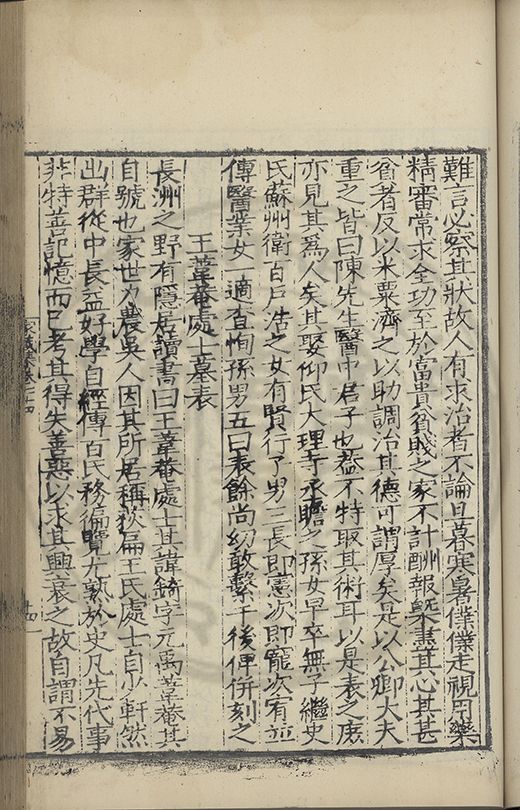 難言必察其狀故人有求治者不論旦暮寒暑僕僕走視用藥
精審常求全功至於富貴貧賤之家不計酬報槩盡其心其甚
貧者反以米粟濟之以助調治其德可謂厚矣是以公卿大夫
重之皆曰陳先生醫中君子也葢不特取其術耳以是表之庶
亦見其爲人矣其娶仰氏大理寺丞瞻之孫女早卒無子繼史
氏蘇州衛百戶浩之女有賢行子男三長即憲次即寵次宥並
傳醫業女一適查恂孫男五曰表餘尚幼敢繫于後俾併刻之
王葦菴處士墓表
長洲之野有隱居讀書曰王葦菴處士其諱錡字元禹葦菴其
自號也家世力農吳人因其所居稱荻扁王氏處士自少軒然
出群從中長益好學自經傳百氏務徧覽尤熟於史凡先代事
非特善記憶而已考其得失善惡以求其興衰之故自謂不易
家藏集卷七十四
十四